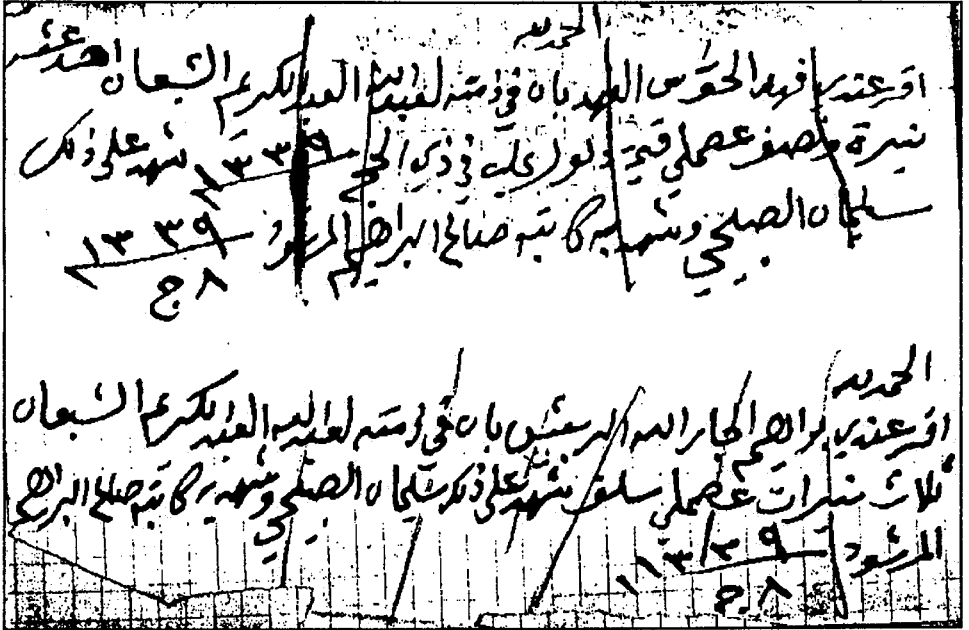 الحمد لله
اقر عندي فهد الحوَس الفهد بان في ذمته لعبدالله العبدالكريم الشبعان احد عشر
نيرة ونصف عصملي قيمة ذلول يحل في ذي الحج ١٣٣٩ شهد على ذلك
سليمان الصلحي وشهد به كاتبه صالح البراهيم المرشود ١٣٣٩
٨ ج
الحمد لله
اقر عندي براهيم الجارالله بان في ذمته لعبدالله العبدالكريم الشبعان
ثلاث نيرات عصملي سلف شهد على ذلك سليمان الصلحي وشهد به كاتبه صالح البراهيم
المرشود ١٣٣٩
٨ ج